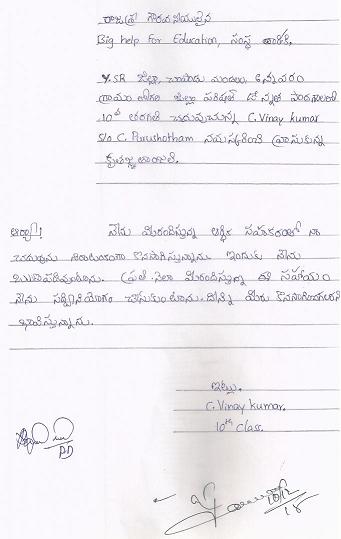 రాజశ్రీ గౌరవనీయులైన
Big help For Education, సంస్థ వారికి,
Y.SR జిల్లా, చాపాడు మండలం, అన్నవరం
గ్రామం లోగల జిల్లా పరిషత్ ఉన్నత పాఠశాలలో
10th తరగతి చదువుచున్న C. Vinay kumar
S/o C. Purushotham నమస్కరించి వ్రాసుకున్న
కృతజ్ఞతాంజలి.
ఆర్యా! నేను మీరందిస్తున్న ఆర్థిక సహకారంతో నా
చదువును నిరాటంకంగా కొనసాగిస్తున్నాను. ఇందుకు నేను
ఋణపడివుంటాను. ప్రతి నెలా మీరందిస్తున్న ఈ సహాయం
నేను సద్వినియోగం చేసుకుంటూను. దీన్ని మీరు కొనసాగించగలరని
భావిస్తున్నాను.
ఇట్లు,
C. Vinay kumar.
10th class.